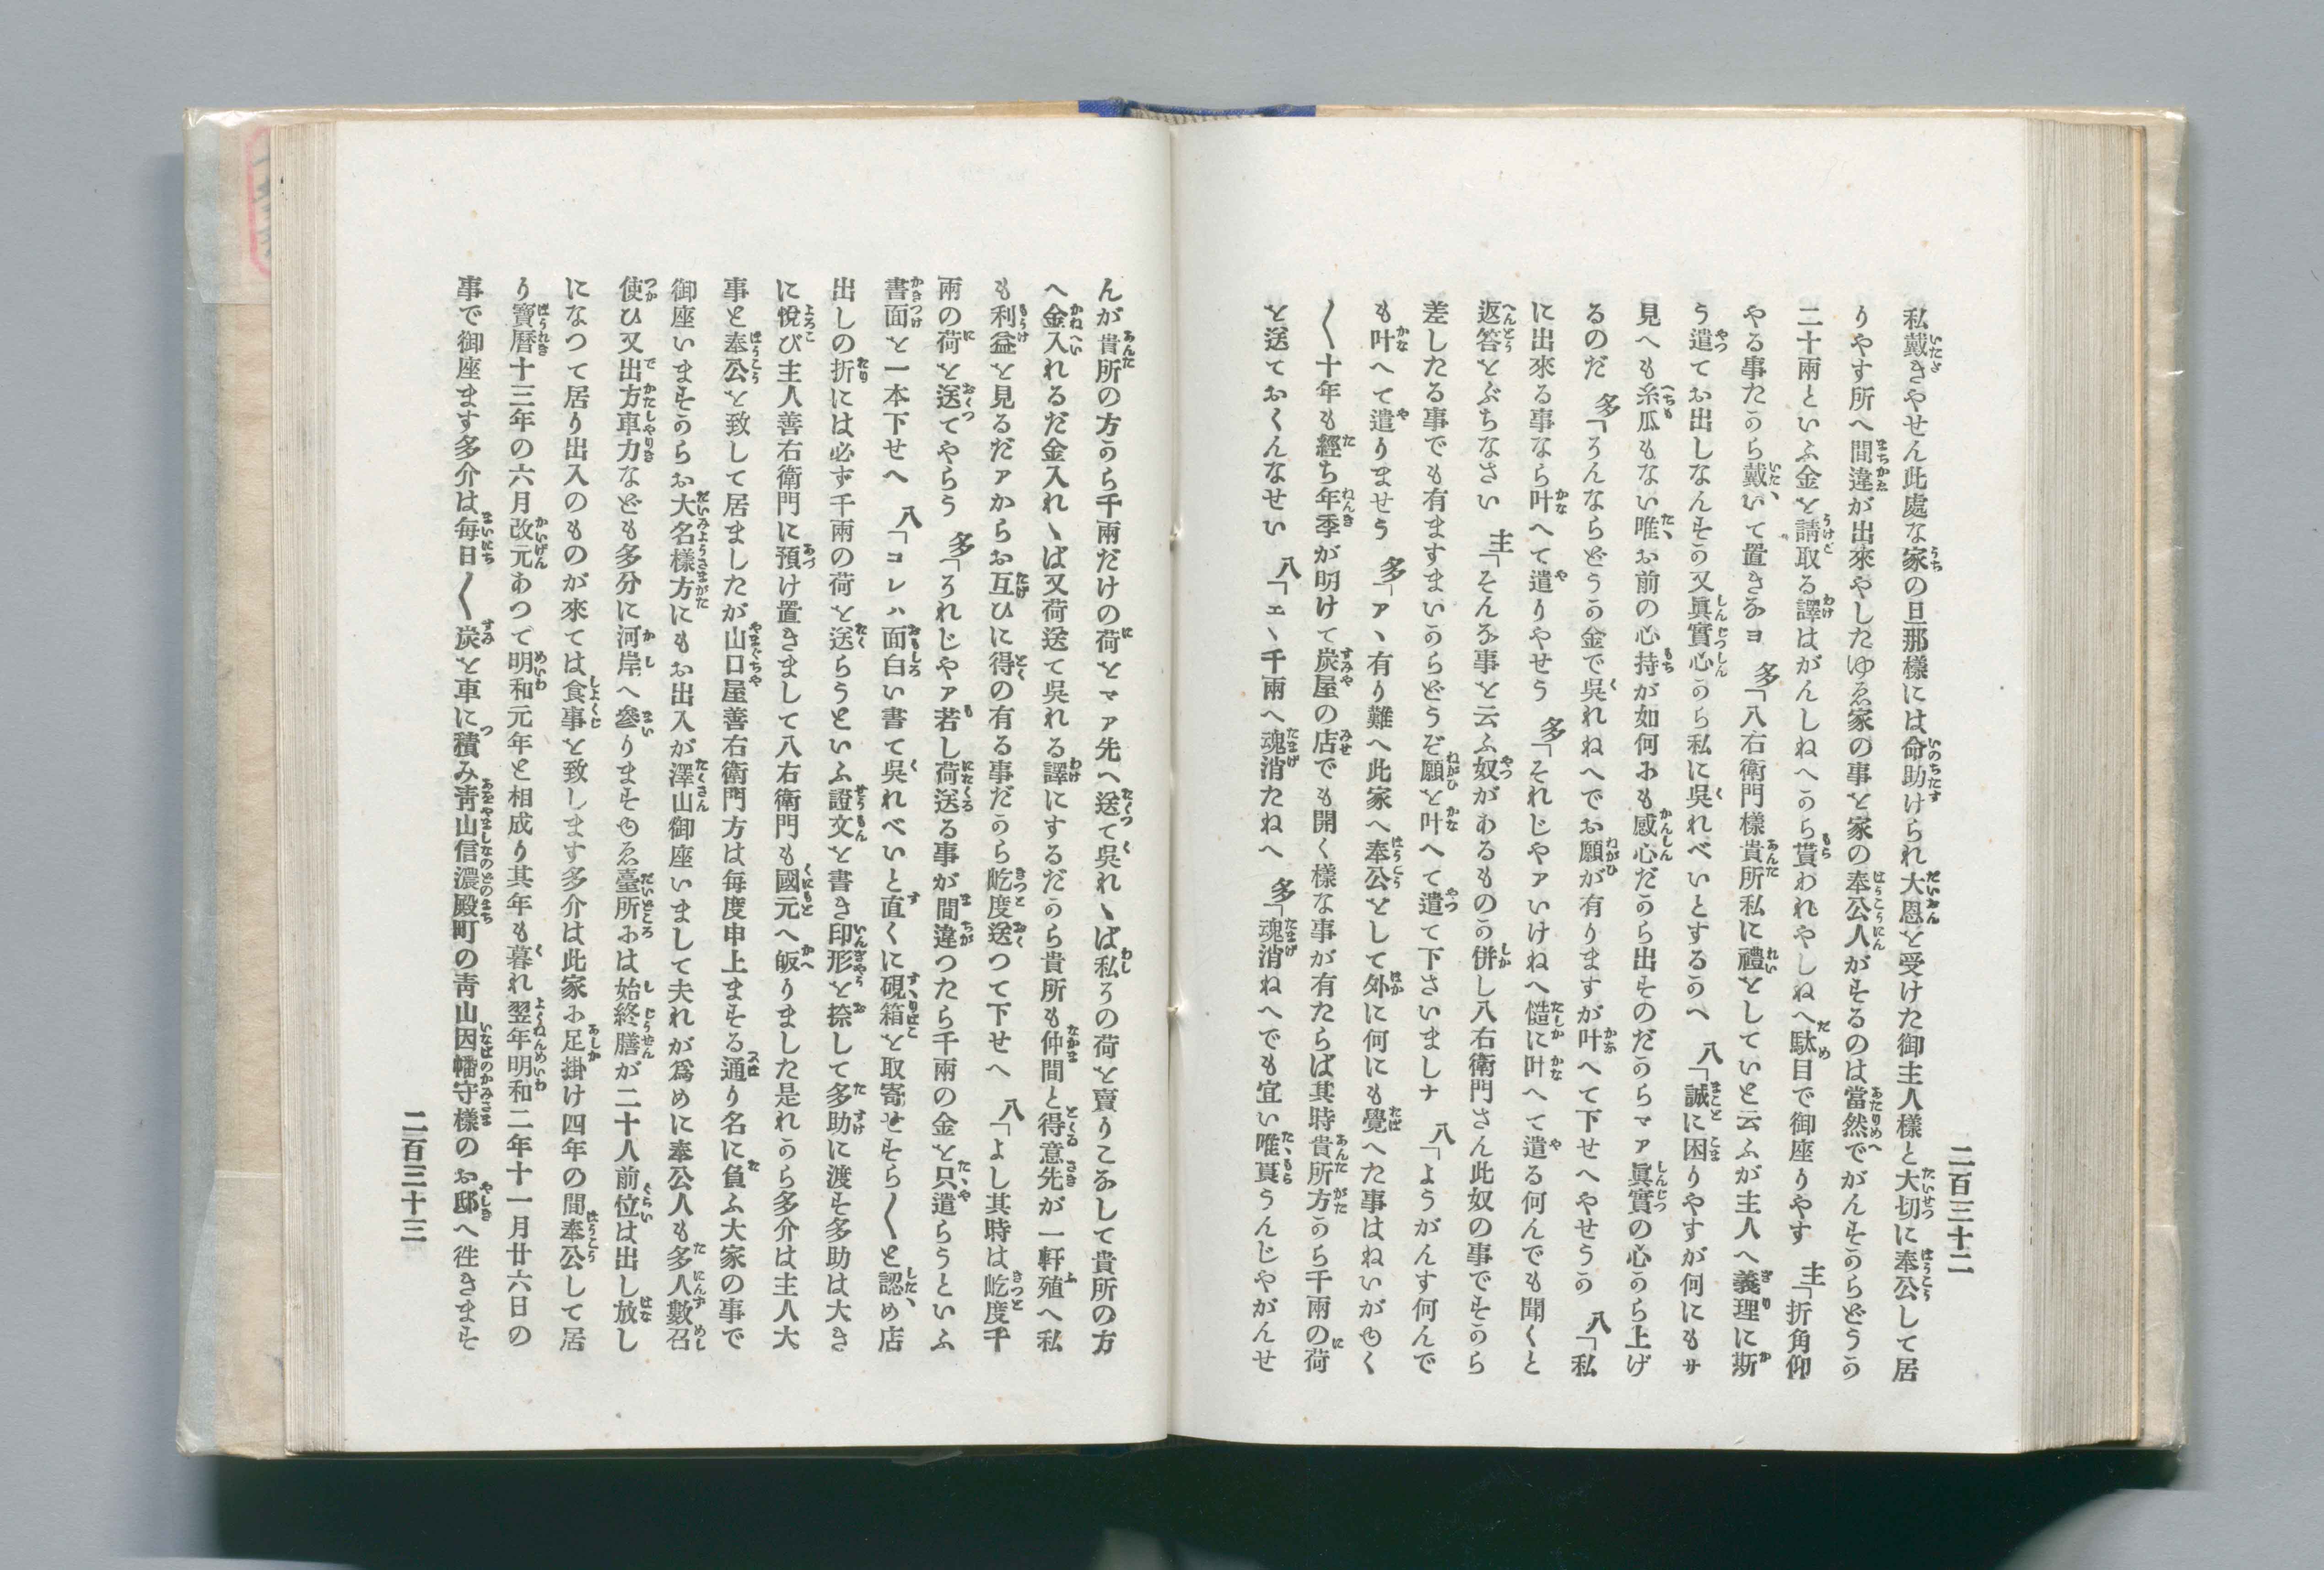 二百三十二
私戴きやせん此處な家の旦那樣には命助けられ大恩を受けた御主人樣と大切に奉公して居
りやす所へ間違が出來やしたゆゑ家の事を家の奉公人がそるのは當然でがんそのらどうの
二十兩といふ金を請取る譯はがんしねへのら貰われやしねへ駄目で御座りやす　主「折角仰
やる事たのら戴いて置きなヨ　多「八右衛門樣貴所私に禮としていと云ふが主人へ義理に斯
う遣つてお出しなんその又眞實心のら私に呉れべいとするのへ　八「誠に困りやすが何にもサ
見へも糸瓜もない唯お前の心持が如何にも感心だのら出そのだのらマァ眞實の心のら上げ
るのだ　多「そんならどうの金で呉れねへでお願が有りますが叶へて下せへやせうの　八「私
に出來る事なら叶へて遣りやせう　多「それじやァいけねへ慥に叶へて遣る何んでも聞くと
返答をぶちなさい　主「そんな事を云ふ奴がわるものの併し八右衛門さん此奴の事でそのら
差したる事でも有ますまいのらどうぞ願を叶へて遣て下さいましナ　八「ようがんす何んで
も叶へて遣りませう　多「アヽ有り難へ此家へ奉公をして外に何にも覺へた事はねいがゆく
〱十年も經ち年季が明けて炭屋の店でも開く樣な事が有たらば其時貴所方のら千兩の荷
を送ておくんなせい　八「エヽ千兩へ魂消たねへ　多「魂消ねへでも宜い唯貰うんじやがんせ
んが貴所の方のら千兩だけの荷をマァ先へ送て呉れヽば私うの荷を賣りこなして貴所の方
へ金入れるだ金入れヽば又荷送て呉れる譯にするだのら貴所も仲間と得意先が一軒殖へ私
も利益を見るだァからお互ひに得の有る事だのら屹度送つて下せへ　八「よし其時は屹度千
兩の荷を送てやらう　多「それじやァ若し荷送る事が間違つたら千兩の金を只遣らうといふ
書面を一本下せへ　八「コレハ面白い書て呉れべいと直くに硯箱を取寄せそら〱と認め店
出しの折には必ず千兩の荷を送らうといふ證文を書き印形を捺して多助に渡そ多助は大き
に悅び主人善右衛門に預け置きまして八右衛門も國元へ皈りました是れのら多介は主人大
事と奉公を致して居ましたが山口屋善右衛門方は每度申上まそる通り名に負ふ大家の事で
御座いまそのらお大名樣方にもお出入が澤山御座いまして夫れが爲めに奉公人も多人數召
使ひ又出方車力なども多分に河岸へ參りまそゆゑ臺所には始終膳が二十人前位は出し放し
になつて居り出入のものが來ては食事を致します多介は此家に足掛け四年の間奉公して居
り寶曆十三年の六月改元あつて明和元年と相成り其年も暮れ翌年明和二年十一月廿六日の
事で御座ます多介は每日〱炭を車に積み靑山信濃殿町の靑山因幡守樣のお邸へ徃きまそ
二百三十三